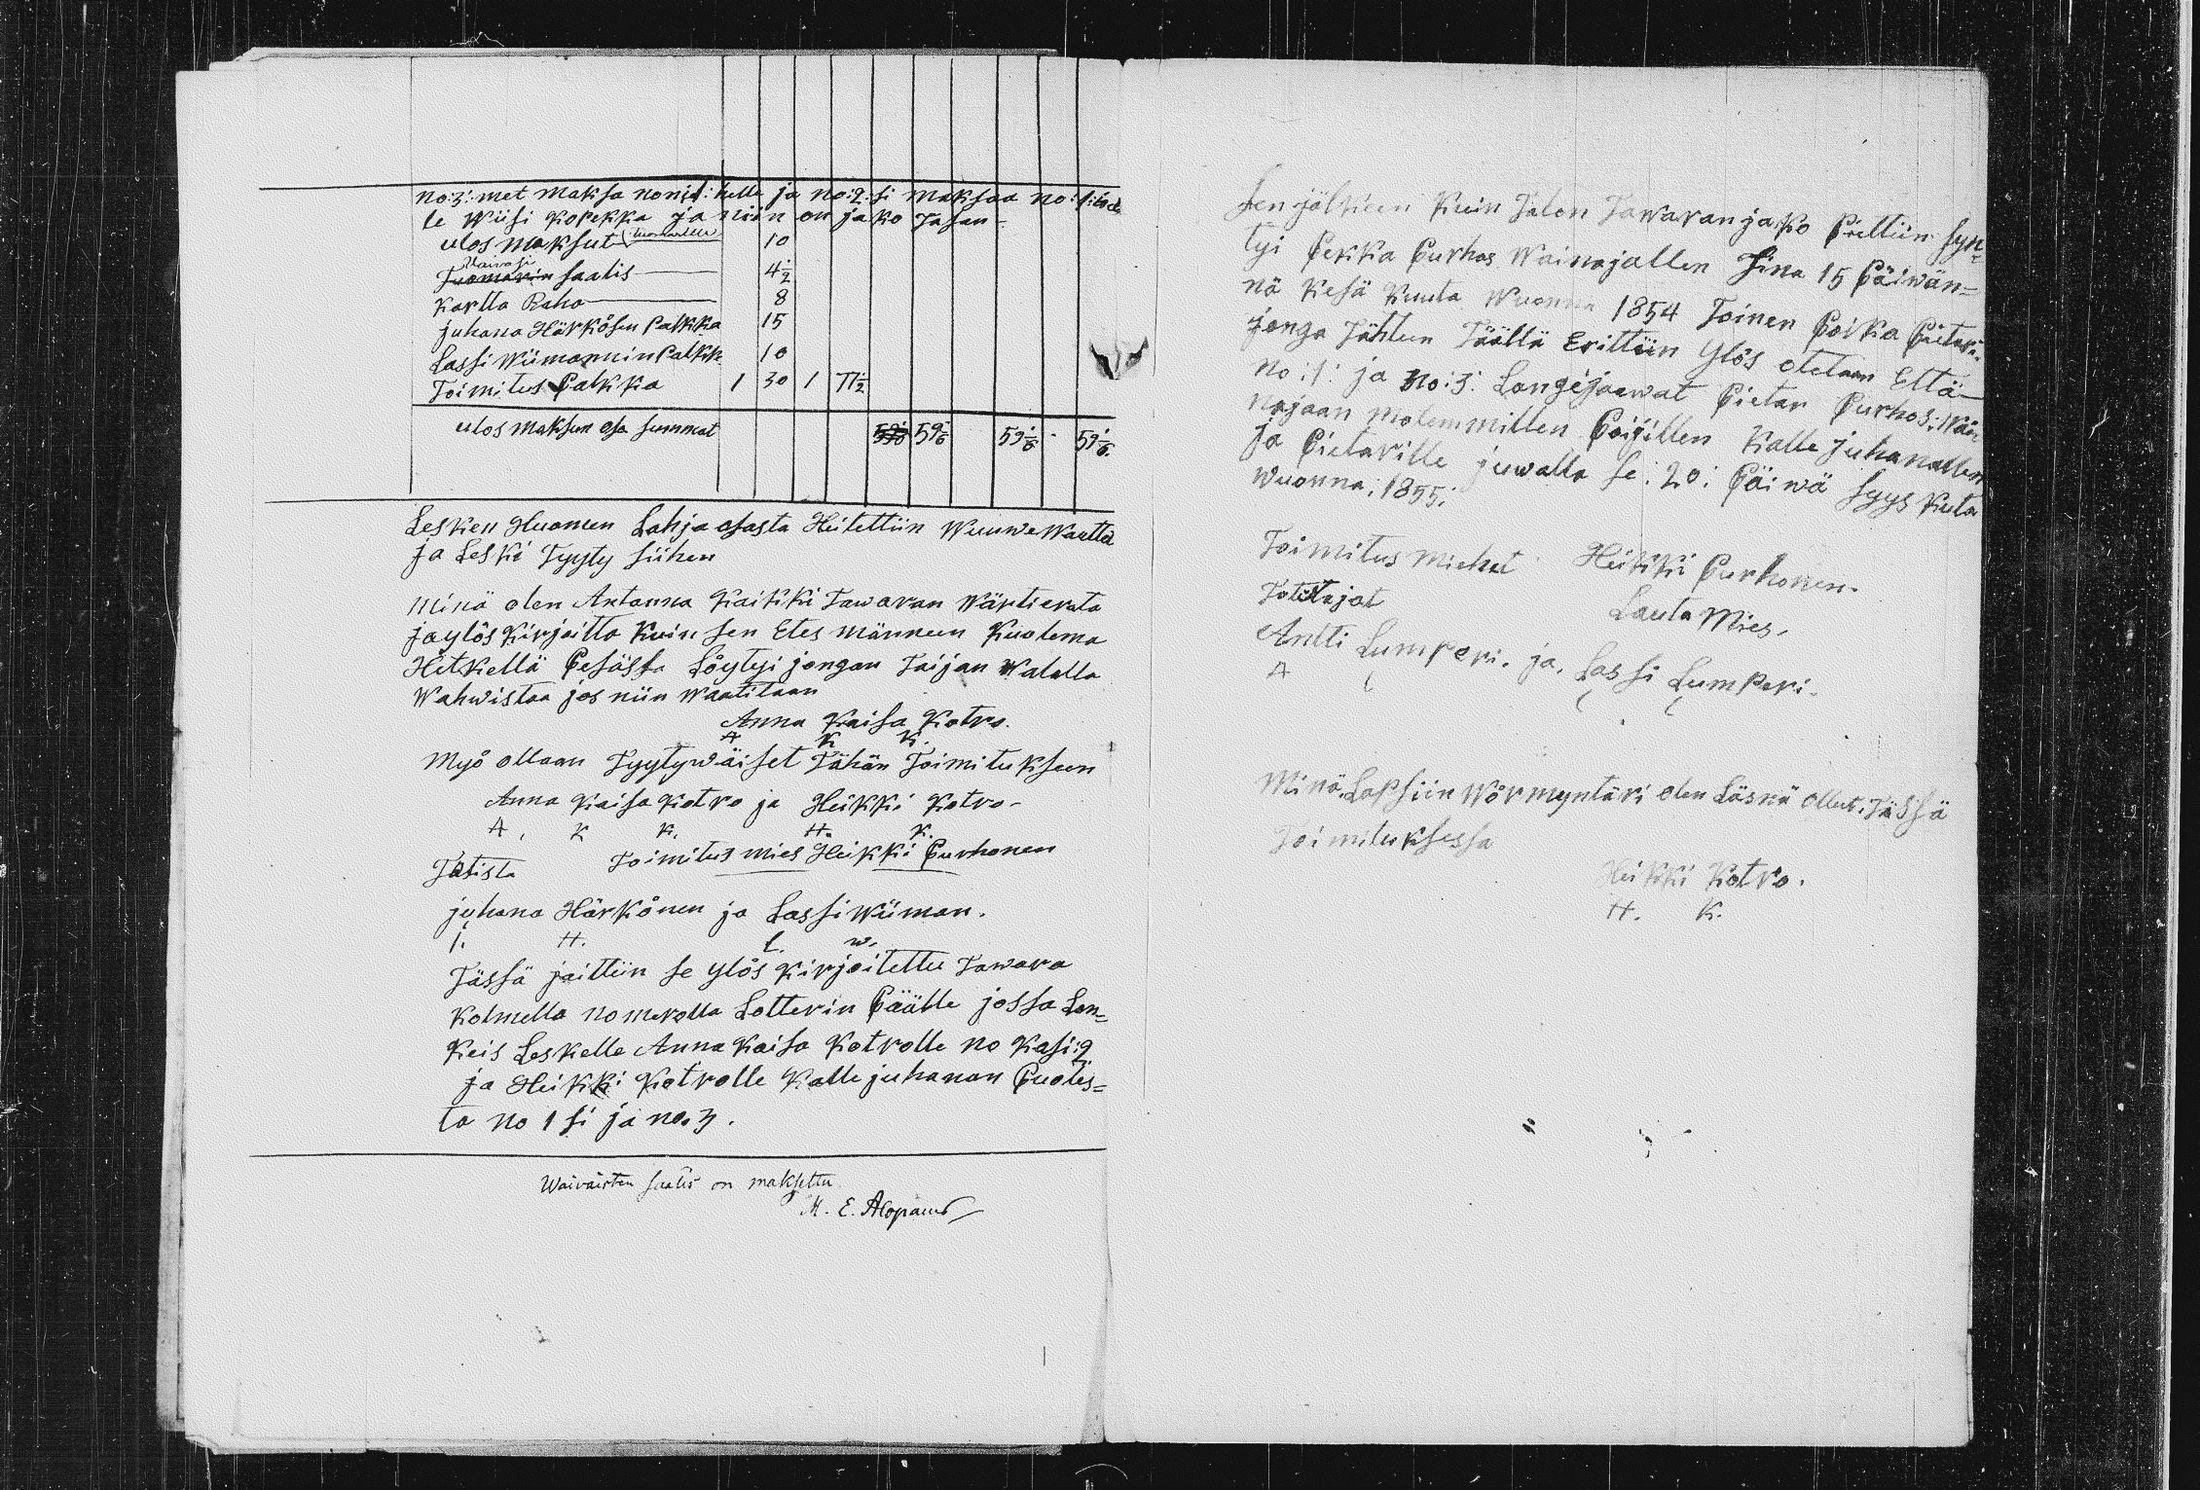 no:3: met maksa no:1: helle ja no:2:si maksaa no:1:
le Wiisi Kopekka ja niin on jako Tasan
ulos maksut 10
Vaivasi
Tuomarin saatis 4 1/2
Kartta Raha 8
juhana Härkösen Palkka 15
Lassi Wiimannin Palkk 10
Toimitus Palkka 1 30 1 77 1/2
ulos maksun osa summat 59 1/6 59 1/6 59 1/6
Lesken Huonen Lahja osasta Heitettiin Wuuwe Waatta
ja Leski Tyyty siihen
Minä olen Antanna Kaikki Tawaran Wärtierata
ja ylös Kirjoitta Kuin sen Etes männeen Kuolema
Hetkellä Pesässa Löytyi jongan Taijan Walalla
Wahwistaa jos niin Waatitaan
Anna Kaisa Kotro.
A K K.
Myö ollaan Tyytywäiset Tähän Toimitukseen
Anna Kaisa Kotro ja Heikki Kotro-
A, K K, H. K.
Toimitus mies Heikki Purhonen
Totista
juhana Härkönen ja Lassi Wiiman.
I. H. L. W.
Tässä jaittiin se ylös Kirjoitettu Tawara
Kolmella nomerolla Lotterin Päälle jossa Lan=
Keis Leskelle Anna Kaisa Kotrolle no Kasi:2
ja Heikki Kotrolle Kalle juhanan Puoles=
ta no 1 si ja no. 3.
Waivaisten saatis on maksettu
M. E. Alopaeus
Sen jälkeen Kuin Talon Tawaran jako Piettiin syn=
tyi Pekka Purhos Wainajallen Sina 15 Päiwän=
nä Kesä Kuuta Wuonna 1854 Toinen Poika Pietari.
jonga Tähten Täällä Erittiin Ylös otetaan Että
no:1: ja no:3: Langijaawat Pietar Purhos: Wai
najaan molemmillen Poijillen Kalle juhanallen
ja Pietarille juwalla se: 20: Päiwä Syys Kuta
Wuonna: 1855:
Toimitus miehet Heikki Purhonen.
Lauta Mies.
Totistajat
Antti Lumperi. ja. Lassi Lumperi.
A L L L
Minä Lapsiin Wörmyntäri olen Läsnä ollut. Tässä
Toimituksessa
Heikki Kotro.
H. K.